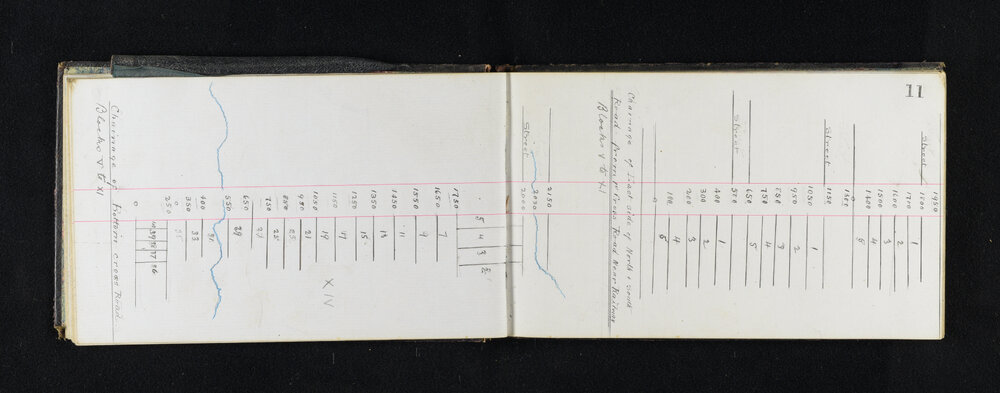 11
1950
Street
1700 1
1600 2
1500 3
1400 4
5
Street 1150
1050 1
950 2
850
750 4
650 5
Street 500
400 1
300 2
200 3
100 4
0 5
Chainage of East side of North & South
Road from 1st Cross Road Near Railway
Blocks V to XI
2150
2050
Street 2000
1750 5 4 3
1650 7
1550 9
1450 11
1350 13
1250 15
1150 17
1050 19
950 21
850 23
750
650 29
550
400 31
350 33
250 35
0
Chainage of cross Road
Blocks V to XI
XIV